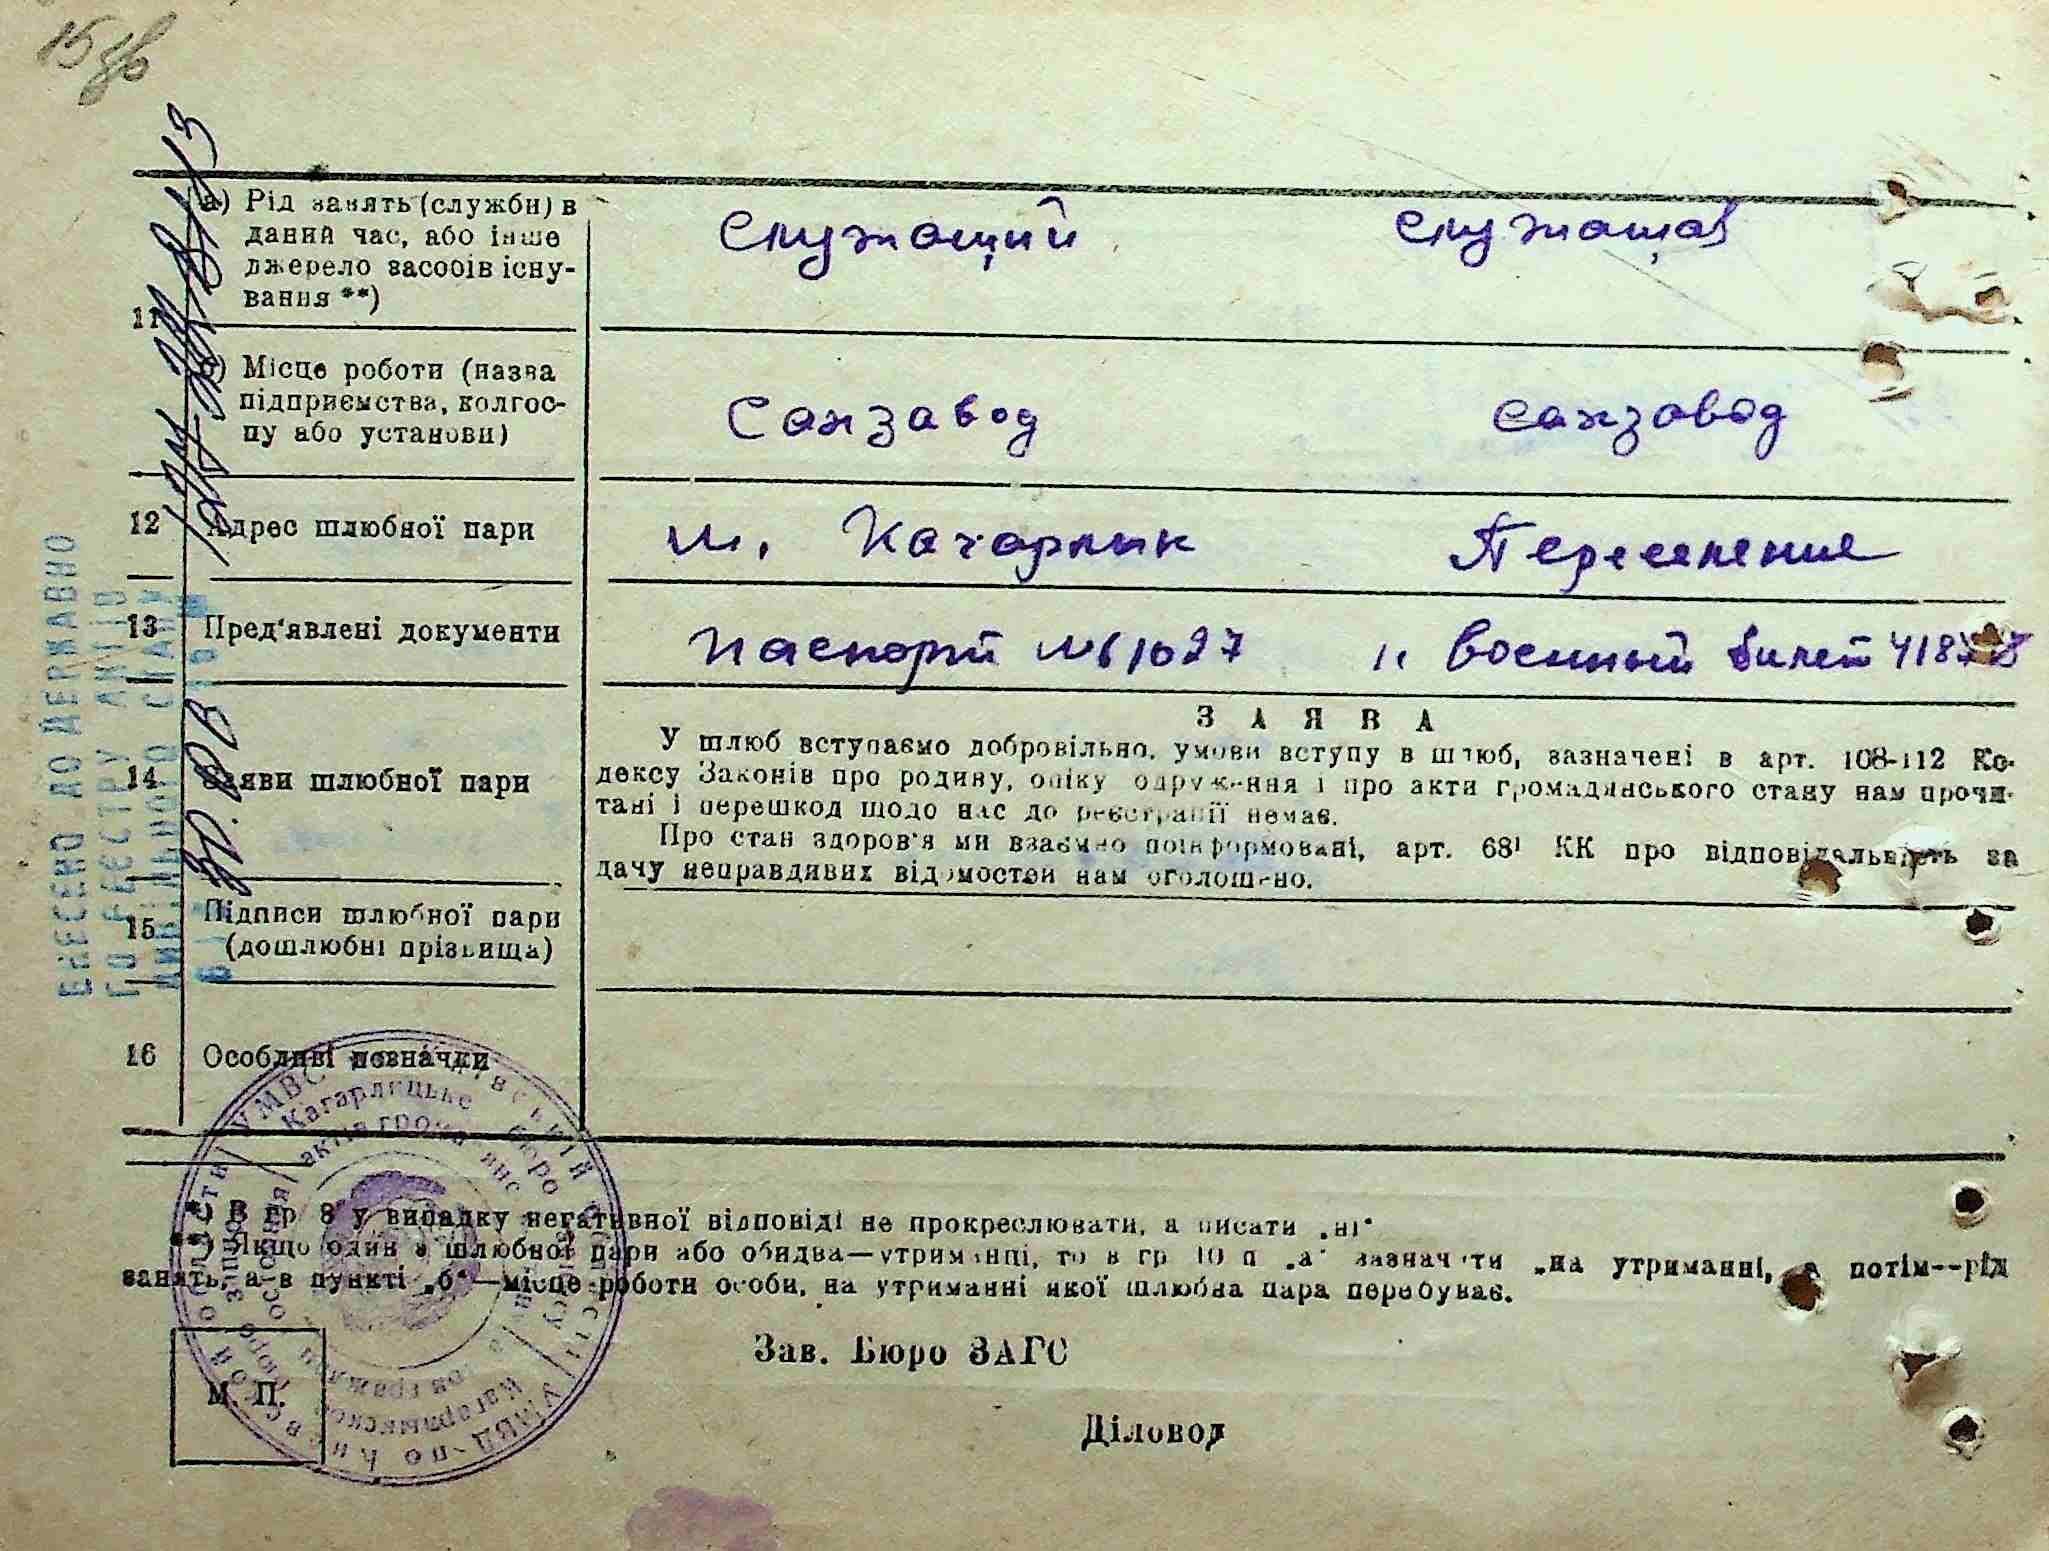 15 зв
а) Рід занять (служби) в
даний час, або інше
джерело засобів існу-
вання **)
Служащий служащая
11
б) Місце роботи (назва
підприємства, колгос-
пу або установи)
Сахзавод сахзавод
12 Адрес шлюбної пари
м. Кагарлык Переселение
13 Пред'явлені документи
Паспорт № 61027 и Военный билет
14 Заяви шлюбної пари
ЗАЯВА
У шлюб вступаємо добровільно, умови вступу в шлюб, зазначені в арт. 108-112 Ко-
дексу Законів про родину, опіку одруження і про акти громадянського стану нам прочи-
тані і перешкод щодо нас до реєстрації немає.
Про стан здоров'я ми взаємно поінформовані, арт. 68¹ КК про відповідальність за
дачу неправдивих відомостей нам оголошено.
15 Підписи шлюбної пари
(дошлюбні прізвища)
16 Особливі позначки
*) В гр 8 у випадку негативної відповіді не прокреслювати, а писати „ні"
**) Якщо один з шлюбної пари або обидва—утриманці, то в гр 10 п „а" зазначити „на утриманні, а потім--рід
занять, а в пункті „б"—місце роботи особи, на утриманні якої шлюбна пара перебуває.
Зав. Бюро ЗАГС
М. П.
Діловод
ВНЕСЕНО ДО ДЕРЖАВНО
ГО РЕЄСТРУ АКТІВ
ЦИВІЛЬНОГО СТАНУ
Кагарлицьке бюро